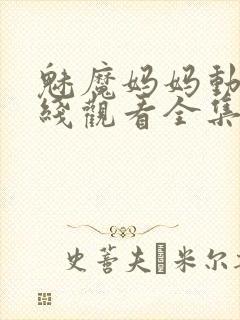 魅魔妈妈動
綫觀看全集
史蒈夫�米尔